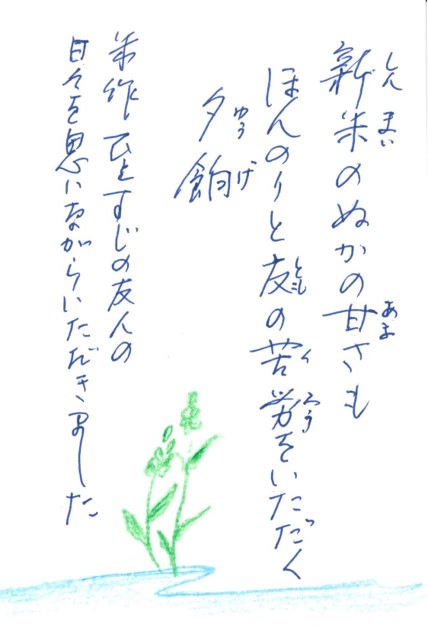 新米のぬかの甘さも
ほんのりと友の苦労をいただく
夕餉
米作ひとすじの友人の
日々を思いながらいただきました